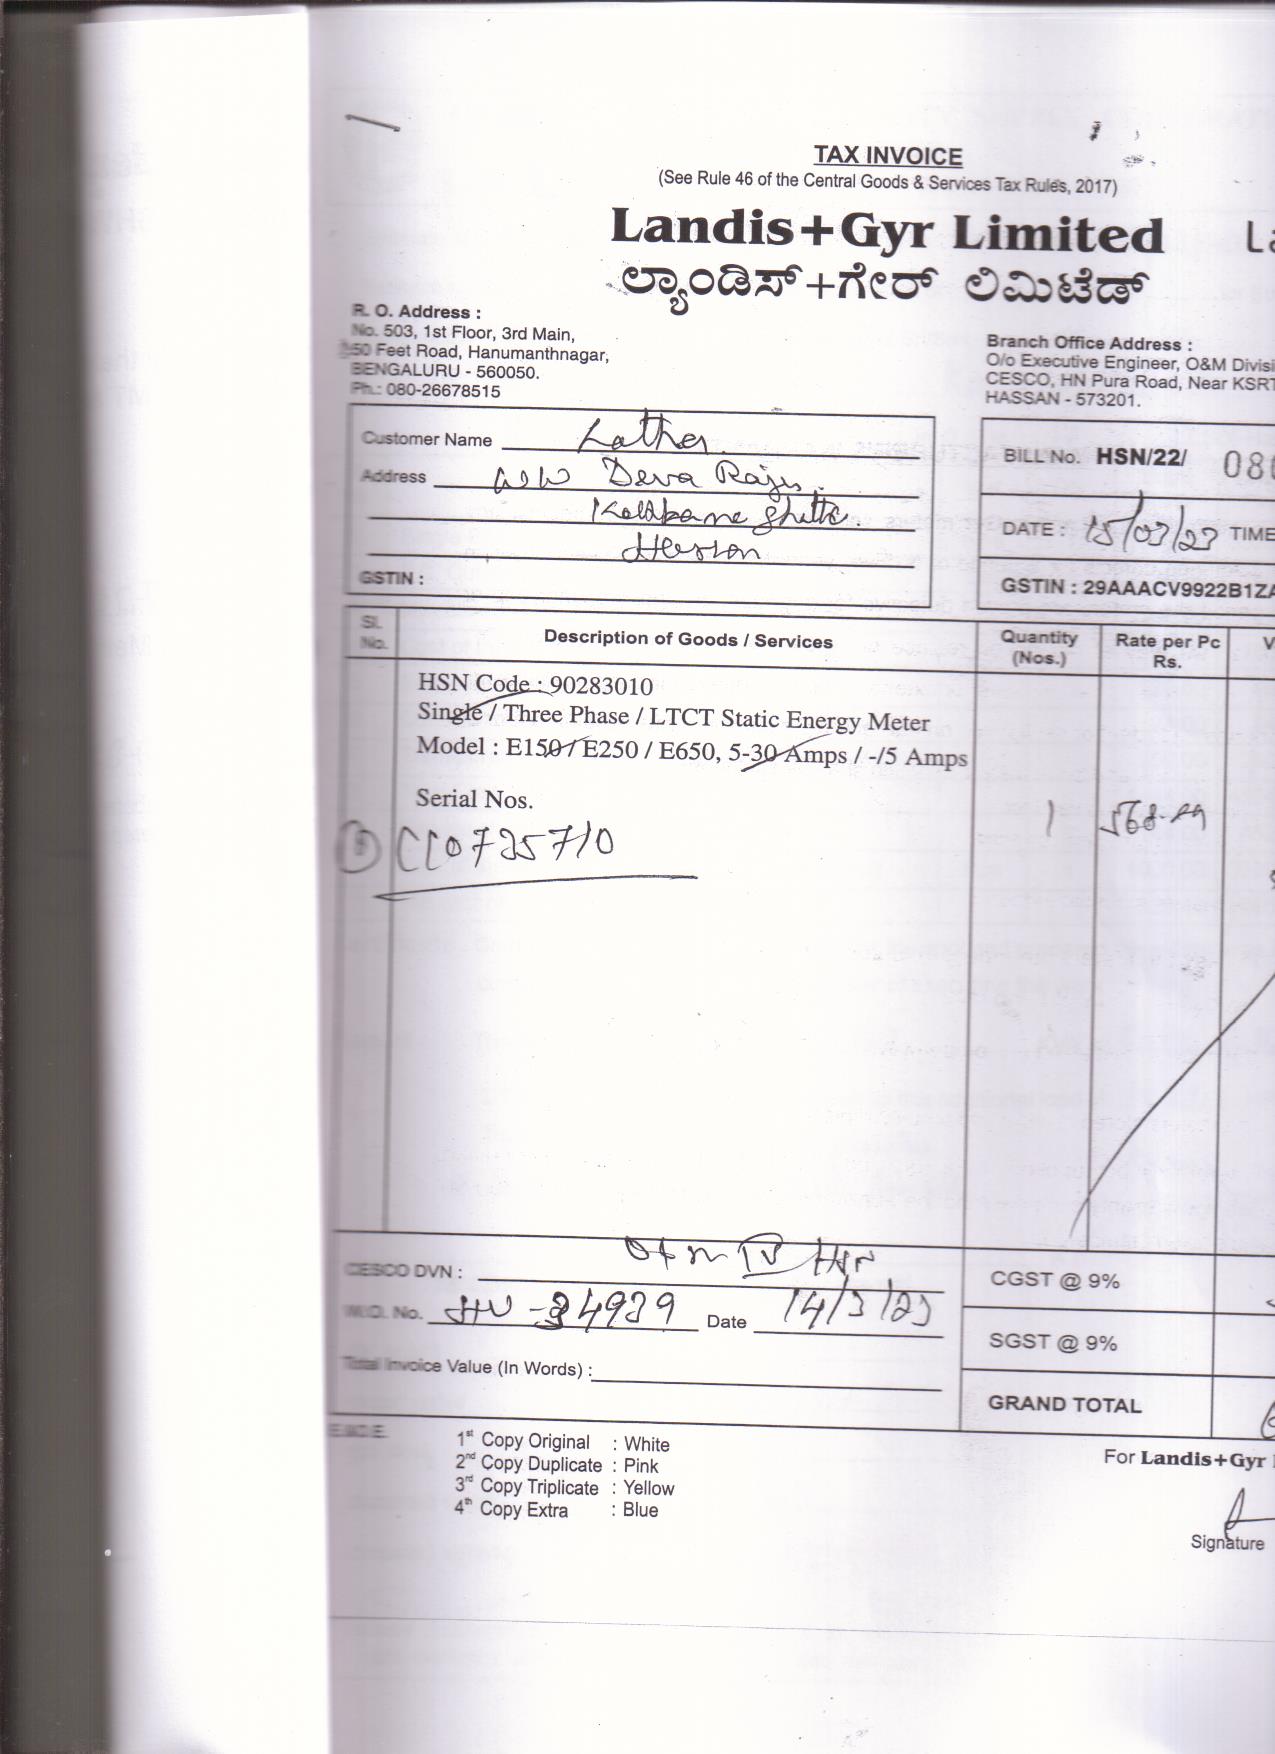 TAX INVOICE
(See Rule 46 of the Central Goods & Services Tax Rules, 2017)
Landis+Gyr Limited
ಲ್ಯಾಂಡಿಸ್+ಗೇರ್ ಲಿಮಿಟೆಡ್
R. O. Address :
No. 503, 1st Floor, 3rd Main,
50 Feet Road, Hanumanthnagar,
BENGALURU - 560050.
Ph.: 080-26678515
Branch Office Address :
O/o Executive Engineer, O&M Divisi
CESCO, HN Pura Road, Near KSRT
HASSAN - 573201.
Customer Name Latha.
Address W/o Deva Raju.
Hassan
GSTIN :
BILL No. HSN/22/ 080
DATE : 15/03/23 TIME
GSTIN : 29AAACV9922B1ZA
Sl. No. Description of Goods / Services Quantity (Nos.) Rate per Pc Rs. V
HSN Code : 90283010
Single / Three Phase / LTCT Static Energy Meter
Model : E150 / E250 / E650, 5-30 Amps / -/5 Amps
Serial Nos.
1 568-
CC0725710
CESCO DVN : HSN
W.O. No. 34939 Date 14/3/23
Total Invoice Value (In Words) :
CGST @ 9%
SGST @ 9%
GRAND TOTAL
E.&O.E.
1st Copy Original : White
2nd Copy Duplicate : Pink
3rd Copy Triplicate : Yellow
4th Copy Extra : Blue
For Landis+Gyr
Signature